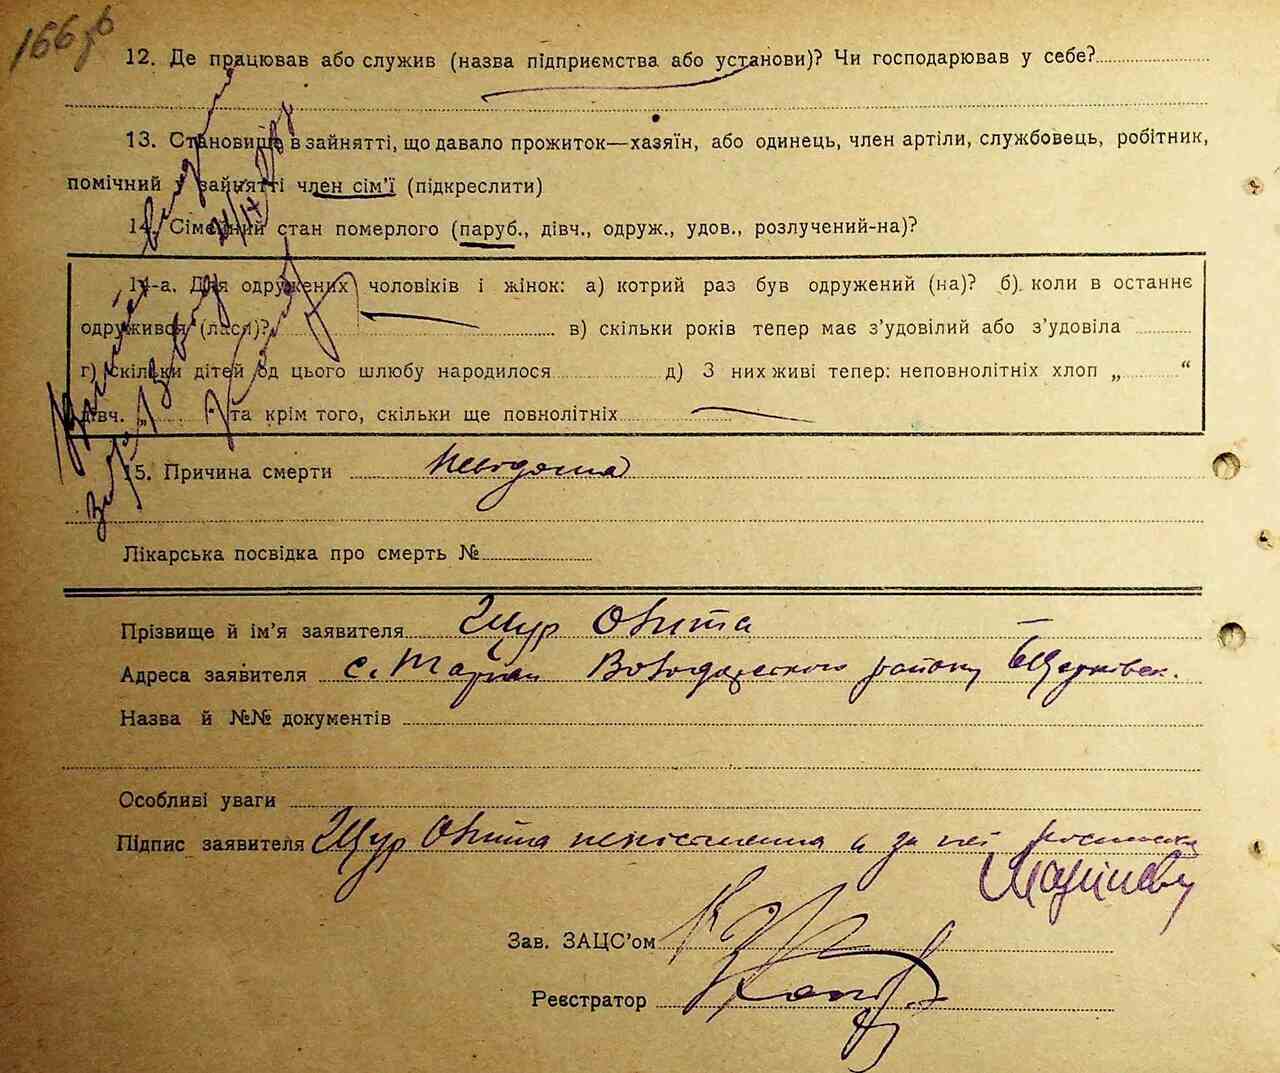 166 зв
12. Де працював або служив (назва підприємства або установи)? Чи господарював у себе?
13. Становище в зайнятті, що давало прожиток—хазяїн, або одинець, член артіли, службовець, робітник,
помічний у зайнятті член сім'ї (підкреслити)
14. Сімейний стан померлого (паруб., дівч., одруж., удов., розлучений-на)?
14-а. Для одружених чоловіків і жінок: а) котрий раз був одружений (на)? б) коли в останнє
одружився (лася)? в) скільки років тепер має з'удовілий або з'удовіла
г) скільки дітей од цього шлюбу народилося д) З них живі тепер: неповнолітніх хлоп „ “
дівч. „ та крім того, скільки ще повнолітніх
15. Причина смерти невідома
Лікарська посвідка про смерть №
Прізвище й ім'я заявителя Щур
Адреса заявителя с. Володарського району Б Церківск.
Назва й №№ документів
Особливі уваги
Підпис заявителя Щур неписьменна а за неї
Зав. ЗАЦС'ом
Реєстратор